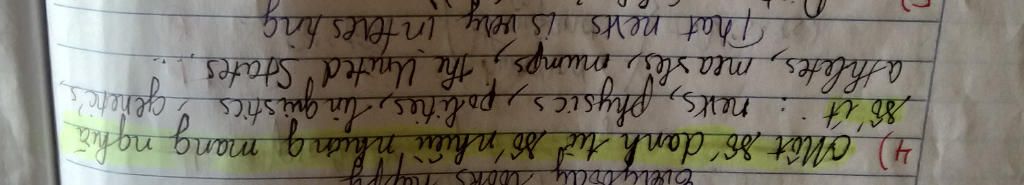 Everybody looks happy
4) Một số danh từ số nhiều nhưng mang nghĩa
số ít : news, physics, politics, linguistics, genetics,
athletes, measles, mumps, the United States, ...
That news is very interesting
5)